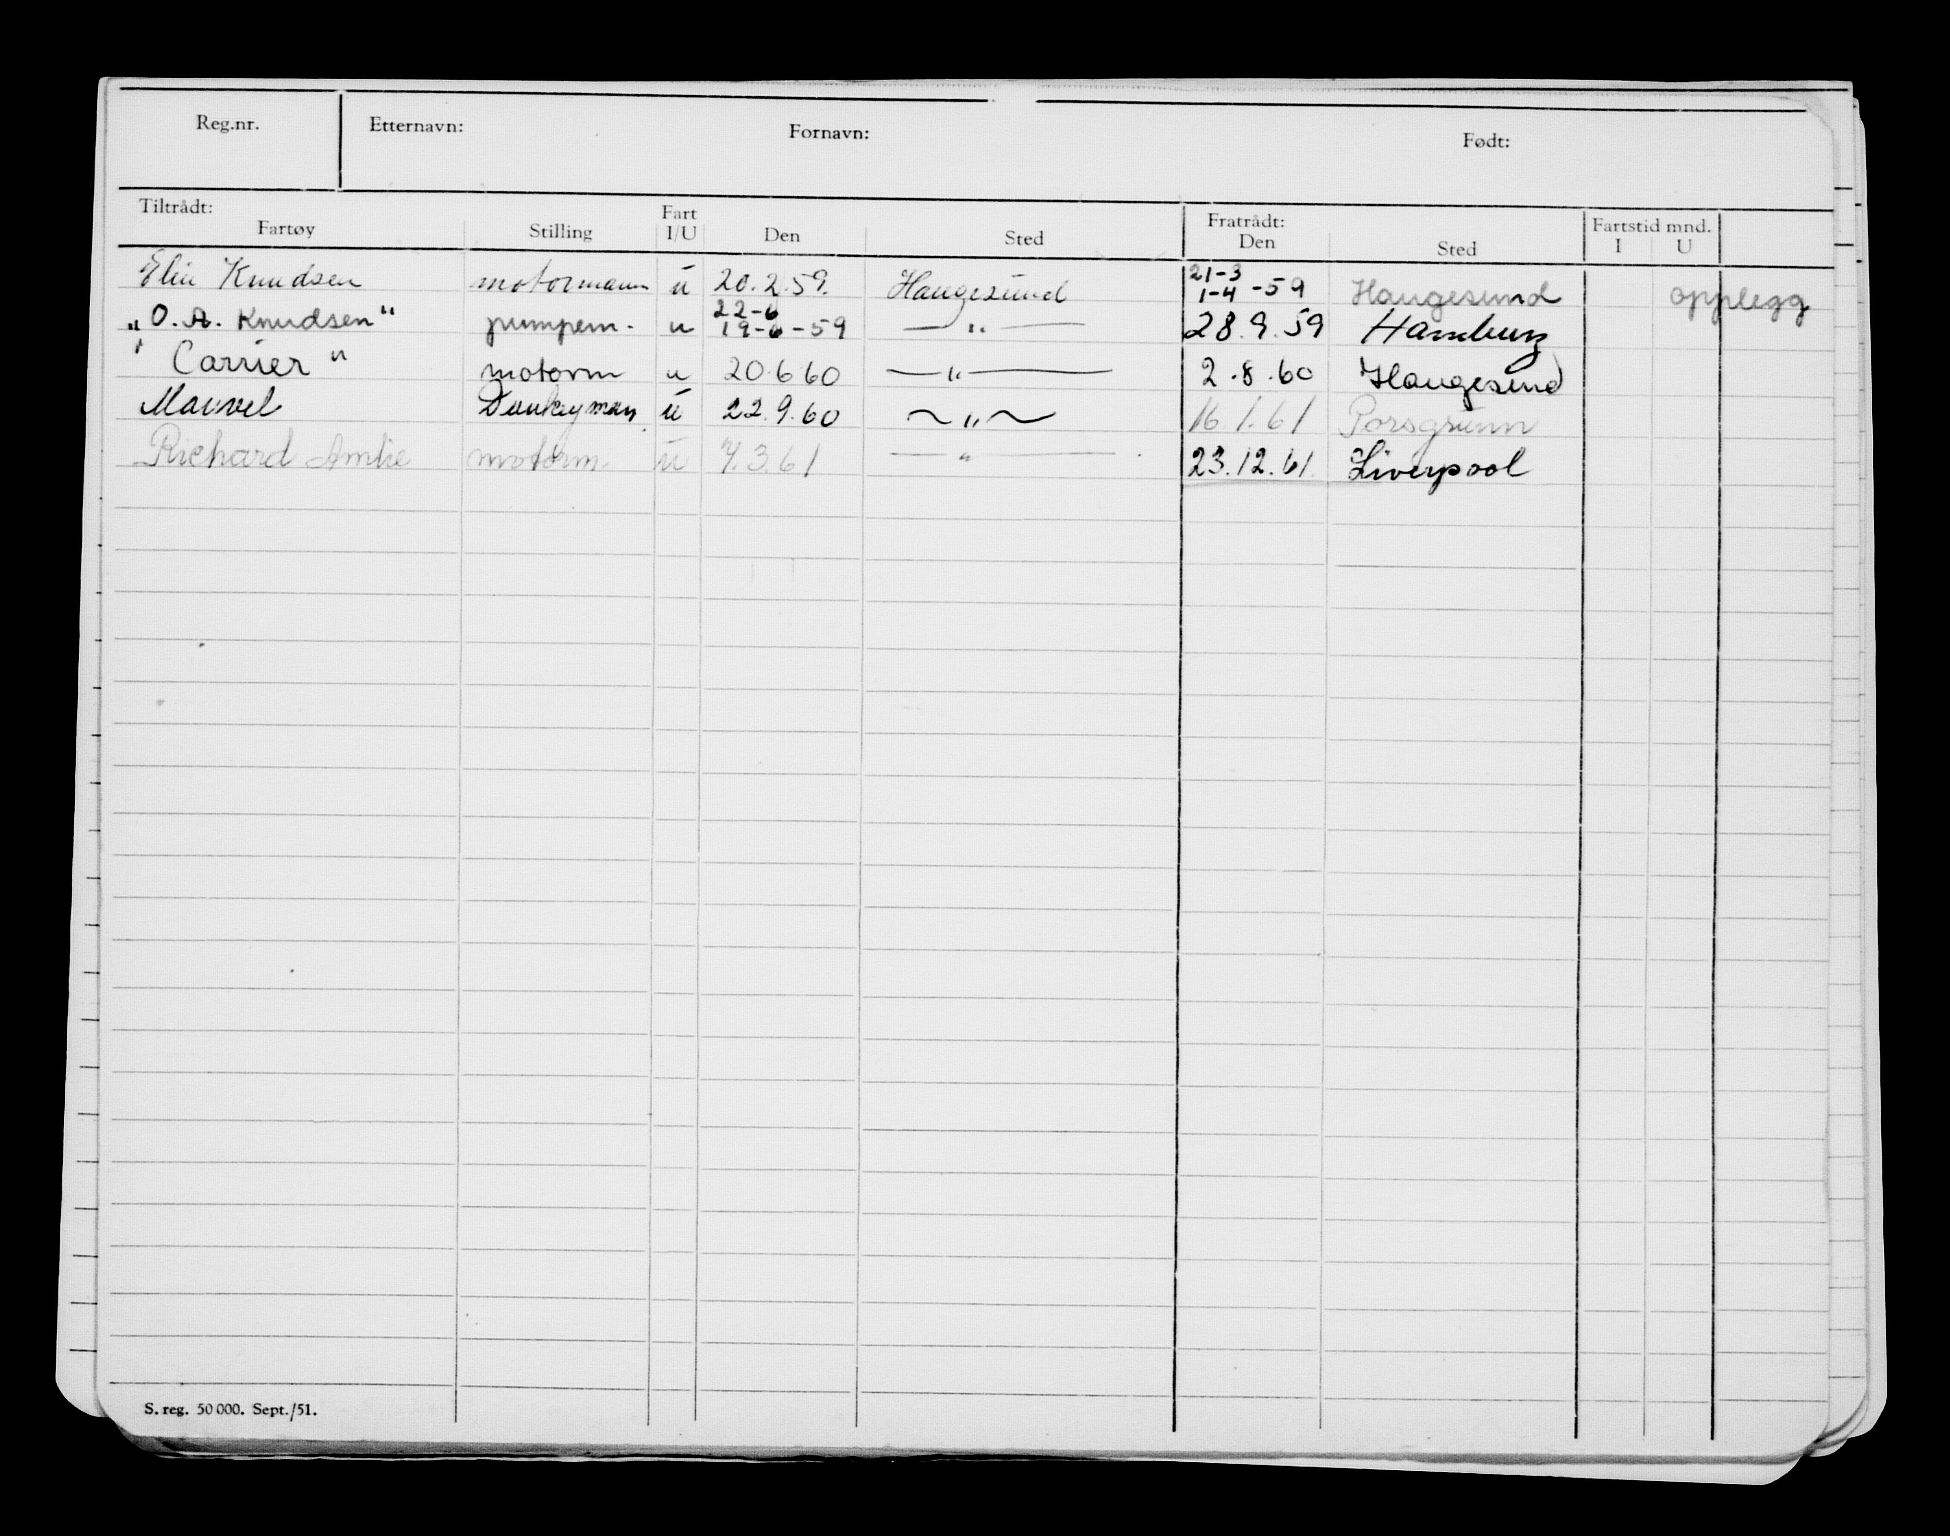 Reg.nr. Etternavn: Fornavn: Født:
Tiltrådt: Fartøy Stilling Fart I/U Den Sted Fratrådt: Den Sted Fartstid mnd. I U
Elin Knudsen motormann u 20.2.59. Haugesund 21-3 1-4-59 Haugesund opplegg
"O. A. Knudsen" pumpem. u 22-6 19-6-59 —"— 28.9.59 Hamburg
"Carrier" motorm u 20.6 60 —"— 2.8.60 Haugesund
Marvel Donkeyman u 22.9.60 ~"~ 16.1.61 Porsgrunn
Richard Amlie motorm. u 7.3.61 —"— 23.12.61. Liverpool
S. reg. 50 000. Sept./51.